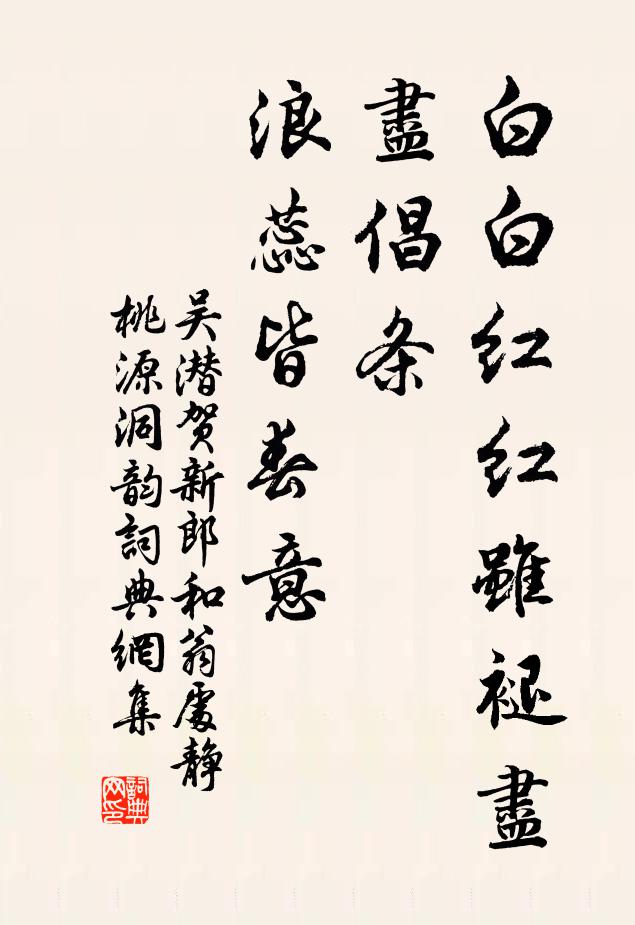 白白红红雖褪盡
盡倡条
浪蕊皆春意
吴潜贺新郎和翁處静
桃源洞韵詞典網集
詞典
网印